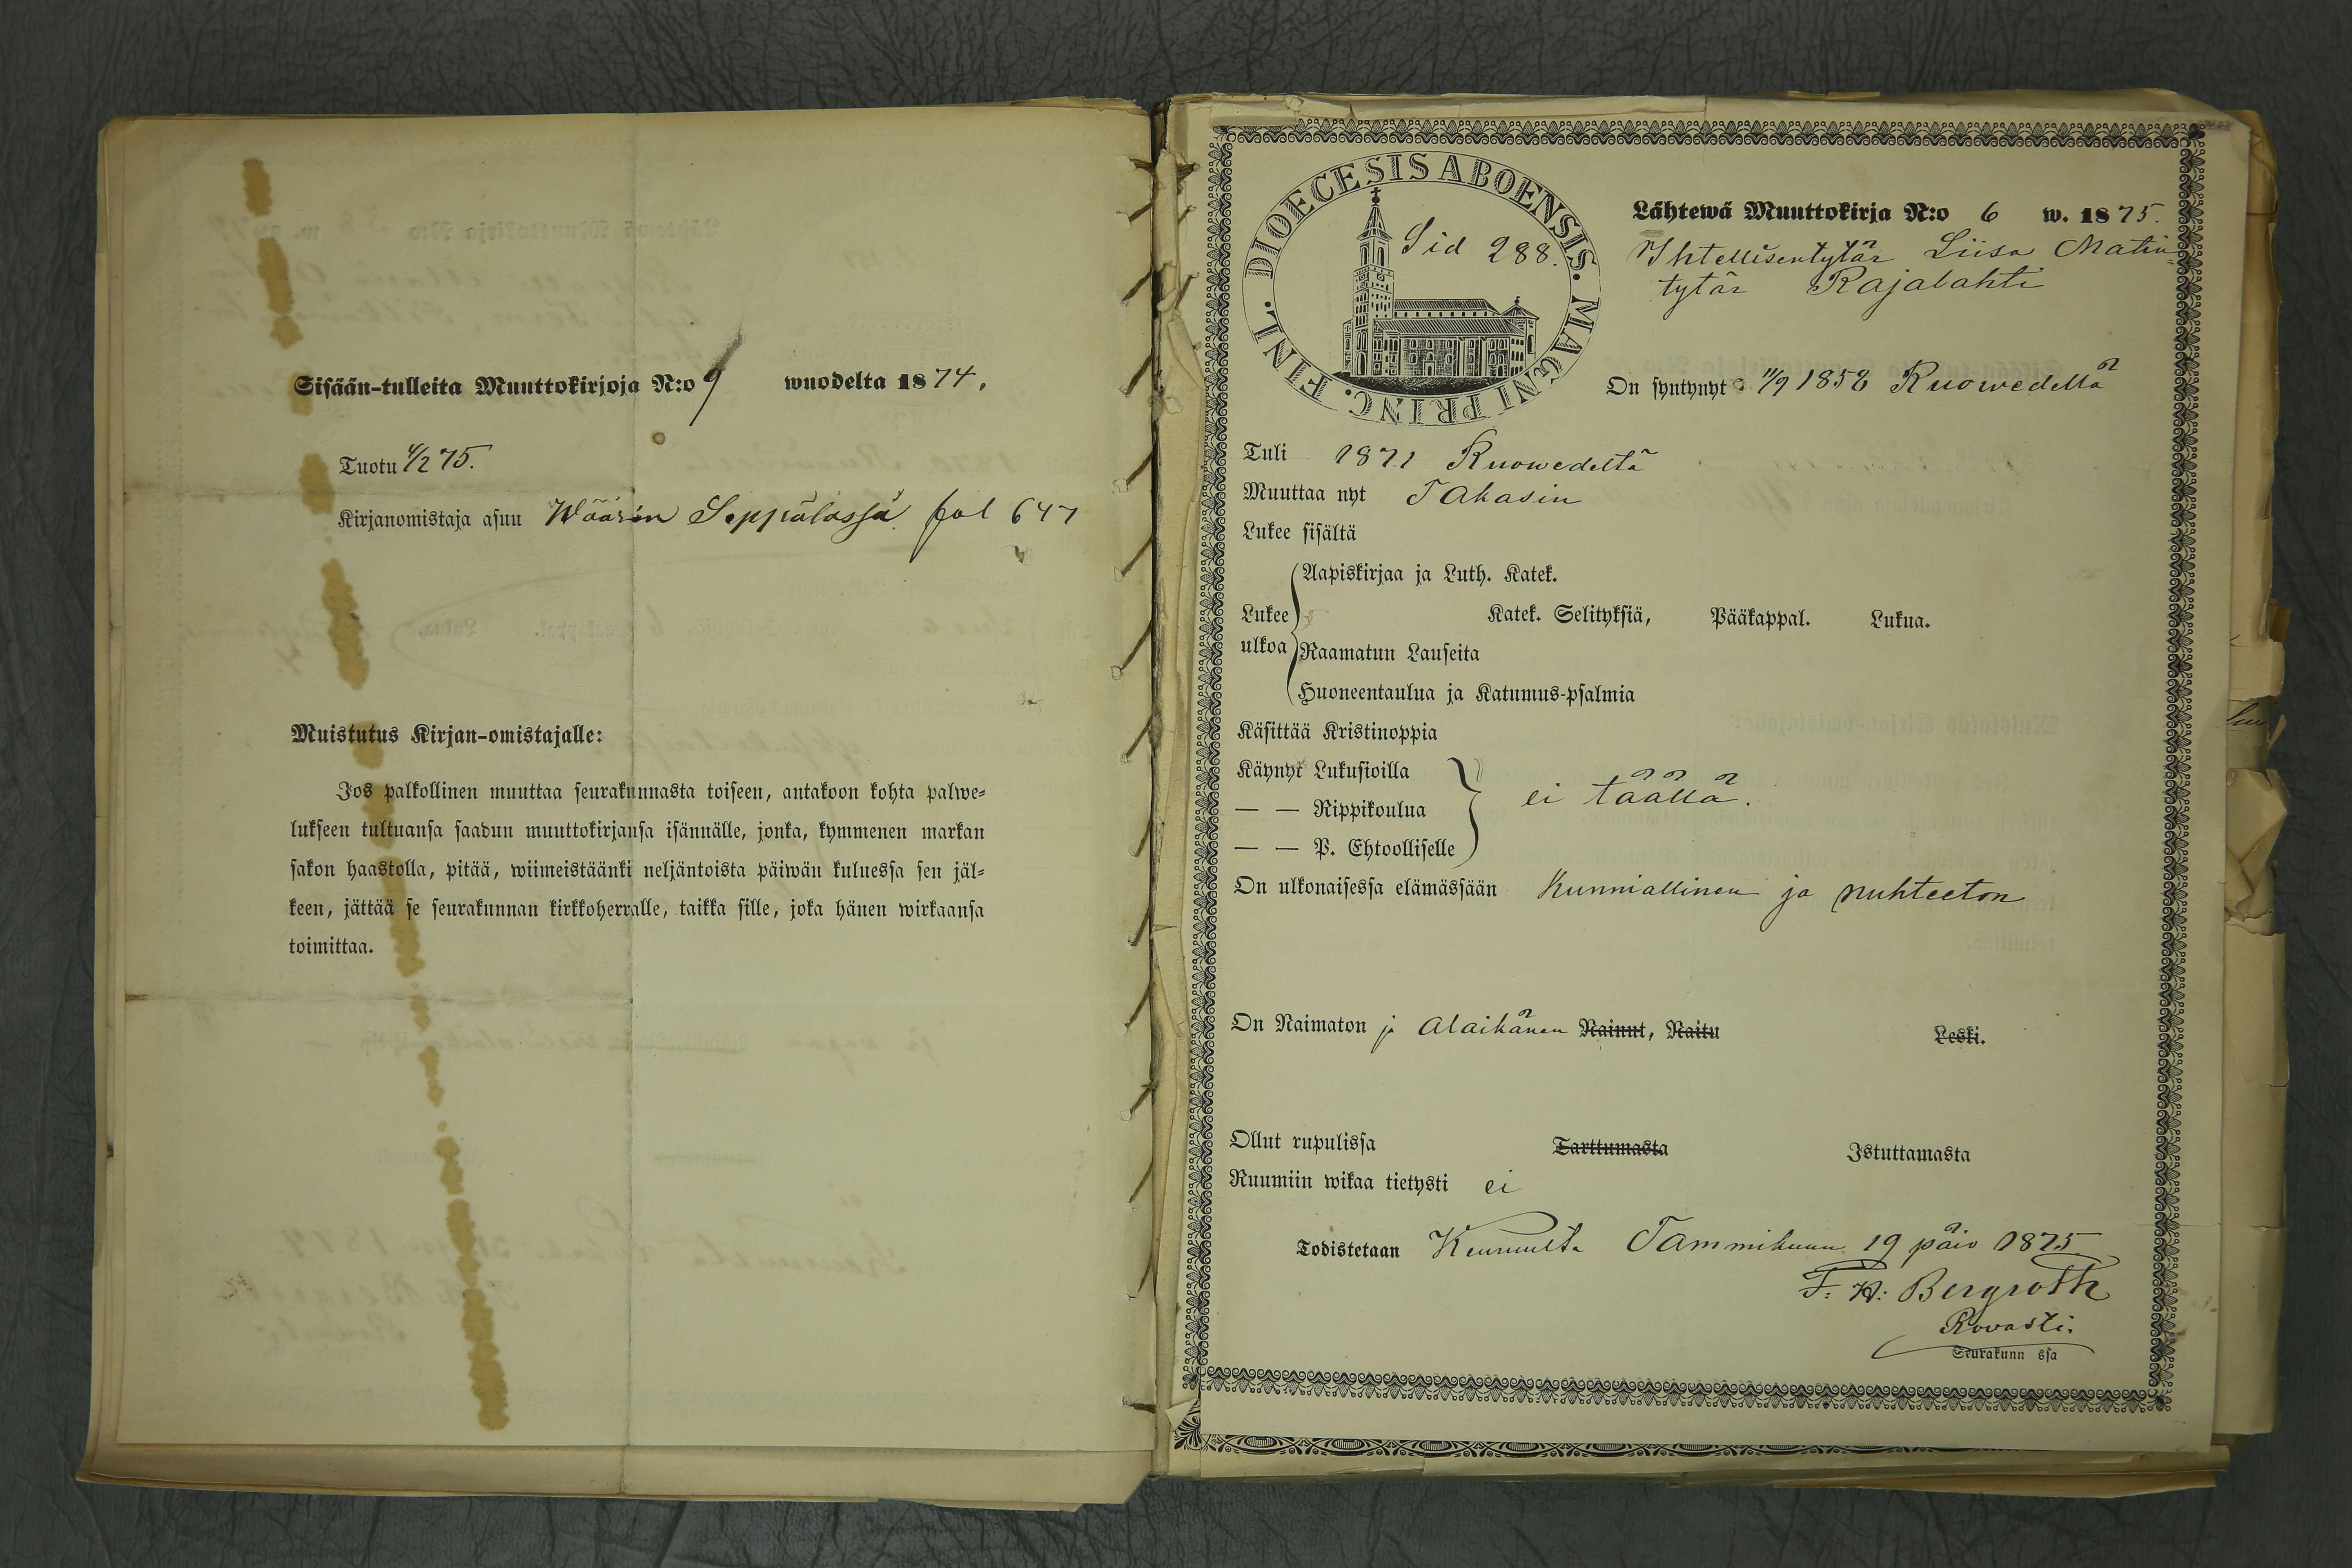 Sisään-tulleita Muuttokirjoja N:o 9 wuodelta 1874.
Tuotu 4/2 75.
Kirjanomistaja asuu Wäärin Seppälässä fol 647
Muistutus Kirjan-omistajalle:
Jos palkollinen muuttaa seurakunnasta toiseen, antakoon kohta palwe-
lukseen tultuansa saadun muuttokirjansa isännälle, jonka, kymmenen markan
sakon haastolla, pitää, wiimeistäänki neljäntoista päiwän kuluessa sen jäl-
keen, jättää se seurakunnan kirkkoherralle, taikka sille, joka hänen wirkaansa
toimittaa.
FINL. DIOECESIS ABOENSIS. MAGNI PRINC.
Sid 288.
Lähtewä Muuttokirja N:o 6 w. 1875.
Ihtellisentytär Liisa Matin-
tytär Rajalahti
On syntynyt 11/9 1858 Ruowedellä
Tuli 1871 Ruowedeltä
Muuttaa nyt Takasin
Lukee sisältä
Lukee ulkoa
Aapiskirjaa ja Luth. Katek.
Katek. Selityksiä, Pääkappal. Lukua.
Raamatun Lauseita
Huoneentaulua ja Katumus-psalmia
Käsittää Kristinoppia
Käynyt Lukusioilla
— — Rippikoulua ei täällä.
— — P. Ehtoolliselle
On ulkonaisessa elämässään Kunniallinen ja nuhteeton
On Naimaton ja alaikänen Nainut, Naitu Leski.
Ollut rupulissa Tarttumasta Istuttamasta
Ruumiin wikaa tietysti ei
Todistetaan Keuruulta Tammikuun 19 päiv 1875
F. W. Bergroth
Rovasti.
Seurakunn ssa